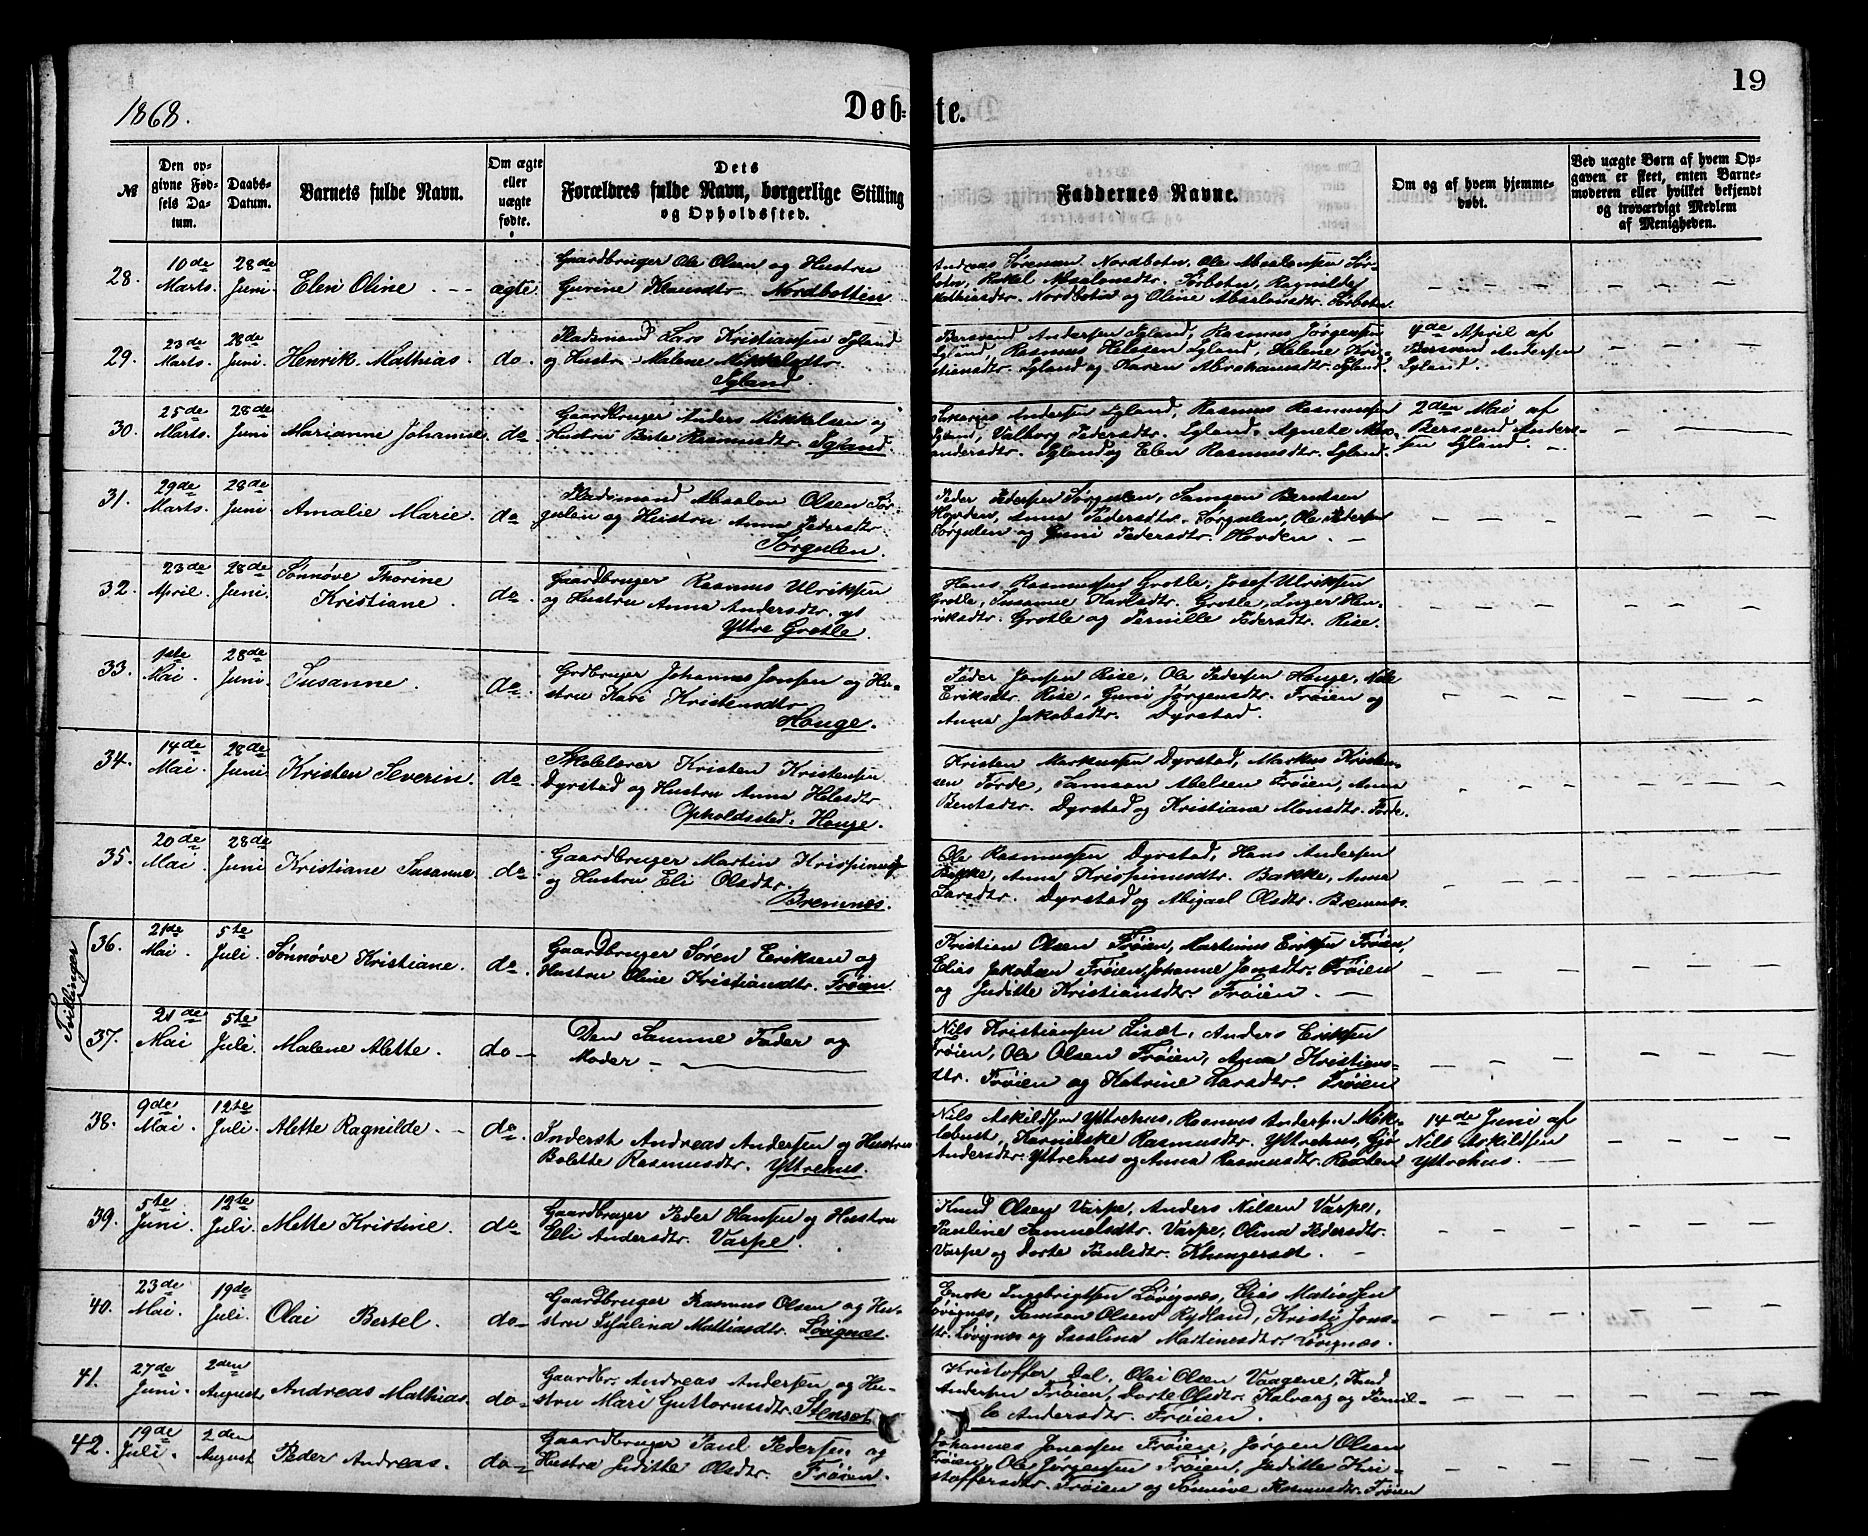 1868.
Døb-te.
19
№
Den op-
givne Fød-
sels Da-
tum.
Daabs-
Datum.
Barnets fulde Navn.
Om ægte
eller
uægte
fødte.
Dets
Forældres fulde Navn, borgerlige Stilling
og Opholdssted.
Faddernes Navne.
Om og af hvem hjemme-
døbt.
Ved uægte Børn af hvem Op-
gaven er skeet, enten Barne-
moderen eller hvilket bekjendt
og troværdigt Medlem
af Menigheden.
28.
10de
Marts.
28de
Juni
Elen Oline
ægte.
Gaardbruger Ole Olsen og Hustru
Gurine Klausdtr. Nordbotten
Andreas Sørensen Nordbotn, Ole Absalonsen Sør-
botn, Rakel Absalonsdtr. Sørbotn, Ragnilde
Mathiasdtr. Nordbotn og Oline Absalonsdtr. Sørbotn.
29.
23de
Marts.
28de
Juni.
Henrik Mathias.
do.
Pladsmand Lars Kristiansen Igland
og Hustru Malene Mikkelsdtr.
Igland.
Bersvend Andersen Igland, Rasmus Jørgensen
Igland, Rasmus Helesen Igland, Helene Kri-
stiensdtr. Igland og Karen Abrahamsdtr. Igland.
4de April af
Bersvend Andersen
Igland.
30.
25de
Marts.
28de
Juni
Marianne Johanne
do
Gaardbruger Anders Mikkelsen og
Hustru Berte Rasmusdtr. Igland.
Andersen Igland, Rasmus Rasmussen
Igland, Valborg Pedersdtr. Igland, Agnete Alex-
andersdtr. Igland og Elen Rasmusdtr. Igland.
2den Mai af
Bersvend Anders-
sen Igland.
31.
29de
Marts.
28de
Juni
Amalie Marie.
do
Pladsmand Absalon Olsen Sør-
gulen og Hustru Anna Pedersdtr
Sørgulen.
Peder Pedersen Sørgulen, Samson Berntsen
Hovden, Anna Pedersdtr. Sørgulen, Ole Pedersen
Sørgulen og Guni Pedersdtr. Hovden.
32.
23de
April.
28de
Juni.
Sønnøve Thorine
Kristiane.
do.
Gaardbruger Rasmus Ulriksen
og Hustru Anna Andersdtr.
Yttre Grotle.
Hans Rasmussen Grotle, Josef Ulriksen
Grotle, Susanne Karlsdtr. Grotle, Inger Hen-
riksdtr. Grotle og Pernille Pedersdtr. Rise.
33.
1ste
Mai.
28de
Juni.
Susanne.
do.
Grdbruger Johannes Jonsen og Hu-
stru Kari Kristensdtr
Hauge.
Peder Jonsen Rise, Ole Pedersen Hauge,
Eriksdtr. Rise, Guni Jørgensdtr. Frøien og
Anna Jakobsdtr. Dyrstad.
34.
14de
Mai.
28de
Juni
Kristen Severin.
do.
Skolelærer Kristen Kristensen
Dyrstad og Hustru Anna Helesdtr
Opholdssted: Hauge.
Kristen Markussen Dyrstad, Markus Kristen-
sen Førde, Samson Abelsen Frøien, Anna
Bentsdtr. Dyrstad og Kristiane Monsdtr. Førde.
35.
20de
Mai
28de
Juni
Kristiane Susanne.
do
Gaardbruger Martin Krispinus
og Hustru Eli Olsdtr.
Bremnes.
Ole Rasmussen Dyrstad, Hans Andersen
Bakke, Anna Krispinusdtr. Bakke, Anna
Larsdtr. Dyrstad og Abigael Olsdtr. Bremnes.
Tvillinger
36.
21de
Mai.
5te
Juli.
Sønnøve Kristiane.
do.
Gaardbruger Søren Eriksen og
Hustru Oline Kristiansdtr. Frøien.
Kristien Olsen Frøien, Martinus Eriksen Frøien,
Elias Jakobsen Frøien, Johanne Jonsdtr. Frøien
og Juditte Kristiansdtr. Frøien.
37.
21de
Mai
5te
Juli.
Malene Alette.
do
Den Samme Fader og
Moder
Nils Kristiansen Liset, Anders Eriksen
Frøien, Ole Olsen Frøien, Anna Kristians-
dtr. Frøien og Katrine Larsdtr. Frøien
38.
9de
Mai.
12te
Juli.
Alette Ragnilde.
do.
Inderst Andreas Andersen og Hustru
Bolette Rasmusdtr. Yttrehus.
Nils Askildsen Yttrehus, Rasmus Andersen Mik-
lebust, Rasmusdtr. Yttrehus,
Andersdtr. Yttrehus og Anna Rasmusdtr.
14de Juni af
Nils Askildsen
Yttrehus.
39.
5te
Juni.
12te
Juli.
Mette Kristine.
do
Gaardbruger Peder Hansen og Hustru
Eli Andersdtr. Varpe.
Knud Olsen Varpe, Anders Nilsen Varpe,
Pauline Samuelsdtr. Varpe, Olina Pedersdtr.
Varpe og Dorte Paulsdtr.
40.
23de
Mai.
19de
Juli.
Olai Bertel.
do
Gaardbruger Rasmus Olsen og Hu-
stru Isalina Mattiasdtr. Løvignæs.
Enok Ingebrigtsen Løvignæs, Elias Matiassen
Løvignæs, Samson Olsen Rydland, Kristi Jons-
dtr. Løvignæs og Martinusdtr. Løvignæs.
41.
27de
Juni.
2den
August
Andreas Mathias.
do
Gaardbr. Andreas Andersen og Hu-
stru Mari Guttormsdtr. Stenset
Kristoffer Dal, Olai Olsen Vaagene, Knud
Andersen Frøien, Dorte Olsdtr. Kalvarg og Pernil-
le Andersdtr. Frøien.
42.
19de
Juli.
2den
August
Peder Andreas.
do
Gaardbruger Paul Pedersen og
Hustru Juditte Olsdtr. Frøien.
Johannes Jonassen Frøien, Jørgen Olsen
Frøien, Ole Jørgensen Frøien, Juditte Kri-
stoffersdtr. Frøien og Sønnøve Rasmusdtr. Frøien